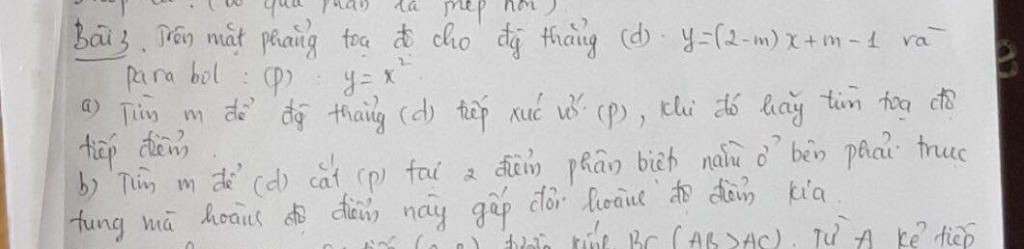 (bỏ qua phần là mép nối)
Bài 3. Trên mặt phẳng toạ độ cho đg thẳng (d): y=(2-m)x+m-1 và
parabol: (P): y=x²
a) Tìm m để đg thẳng (d) tiếp xúc với (P), khi đó hãy tìm toạ độ
tiếp điểm.
b) Tìm m để (d) cắt (P) tại 2 điểm phân biệt nằm ở bên phải trục
tung mà hoành độ điểm này gấp đôi hoành độ điểm kia.
kính BC (AB>AC). Từ A kẻ tiếp